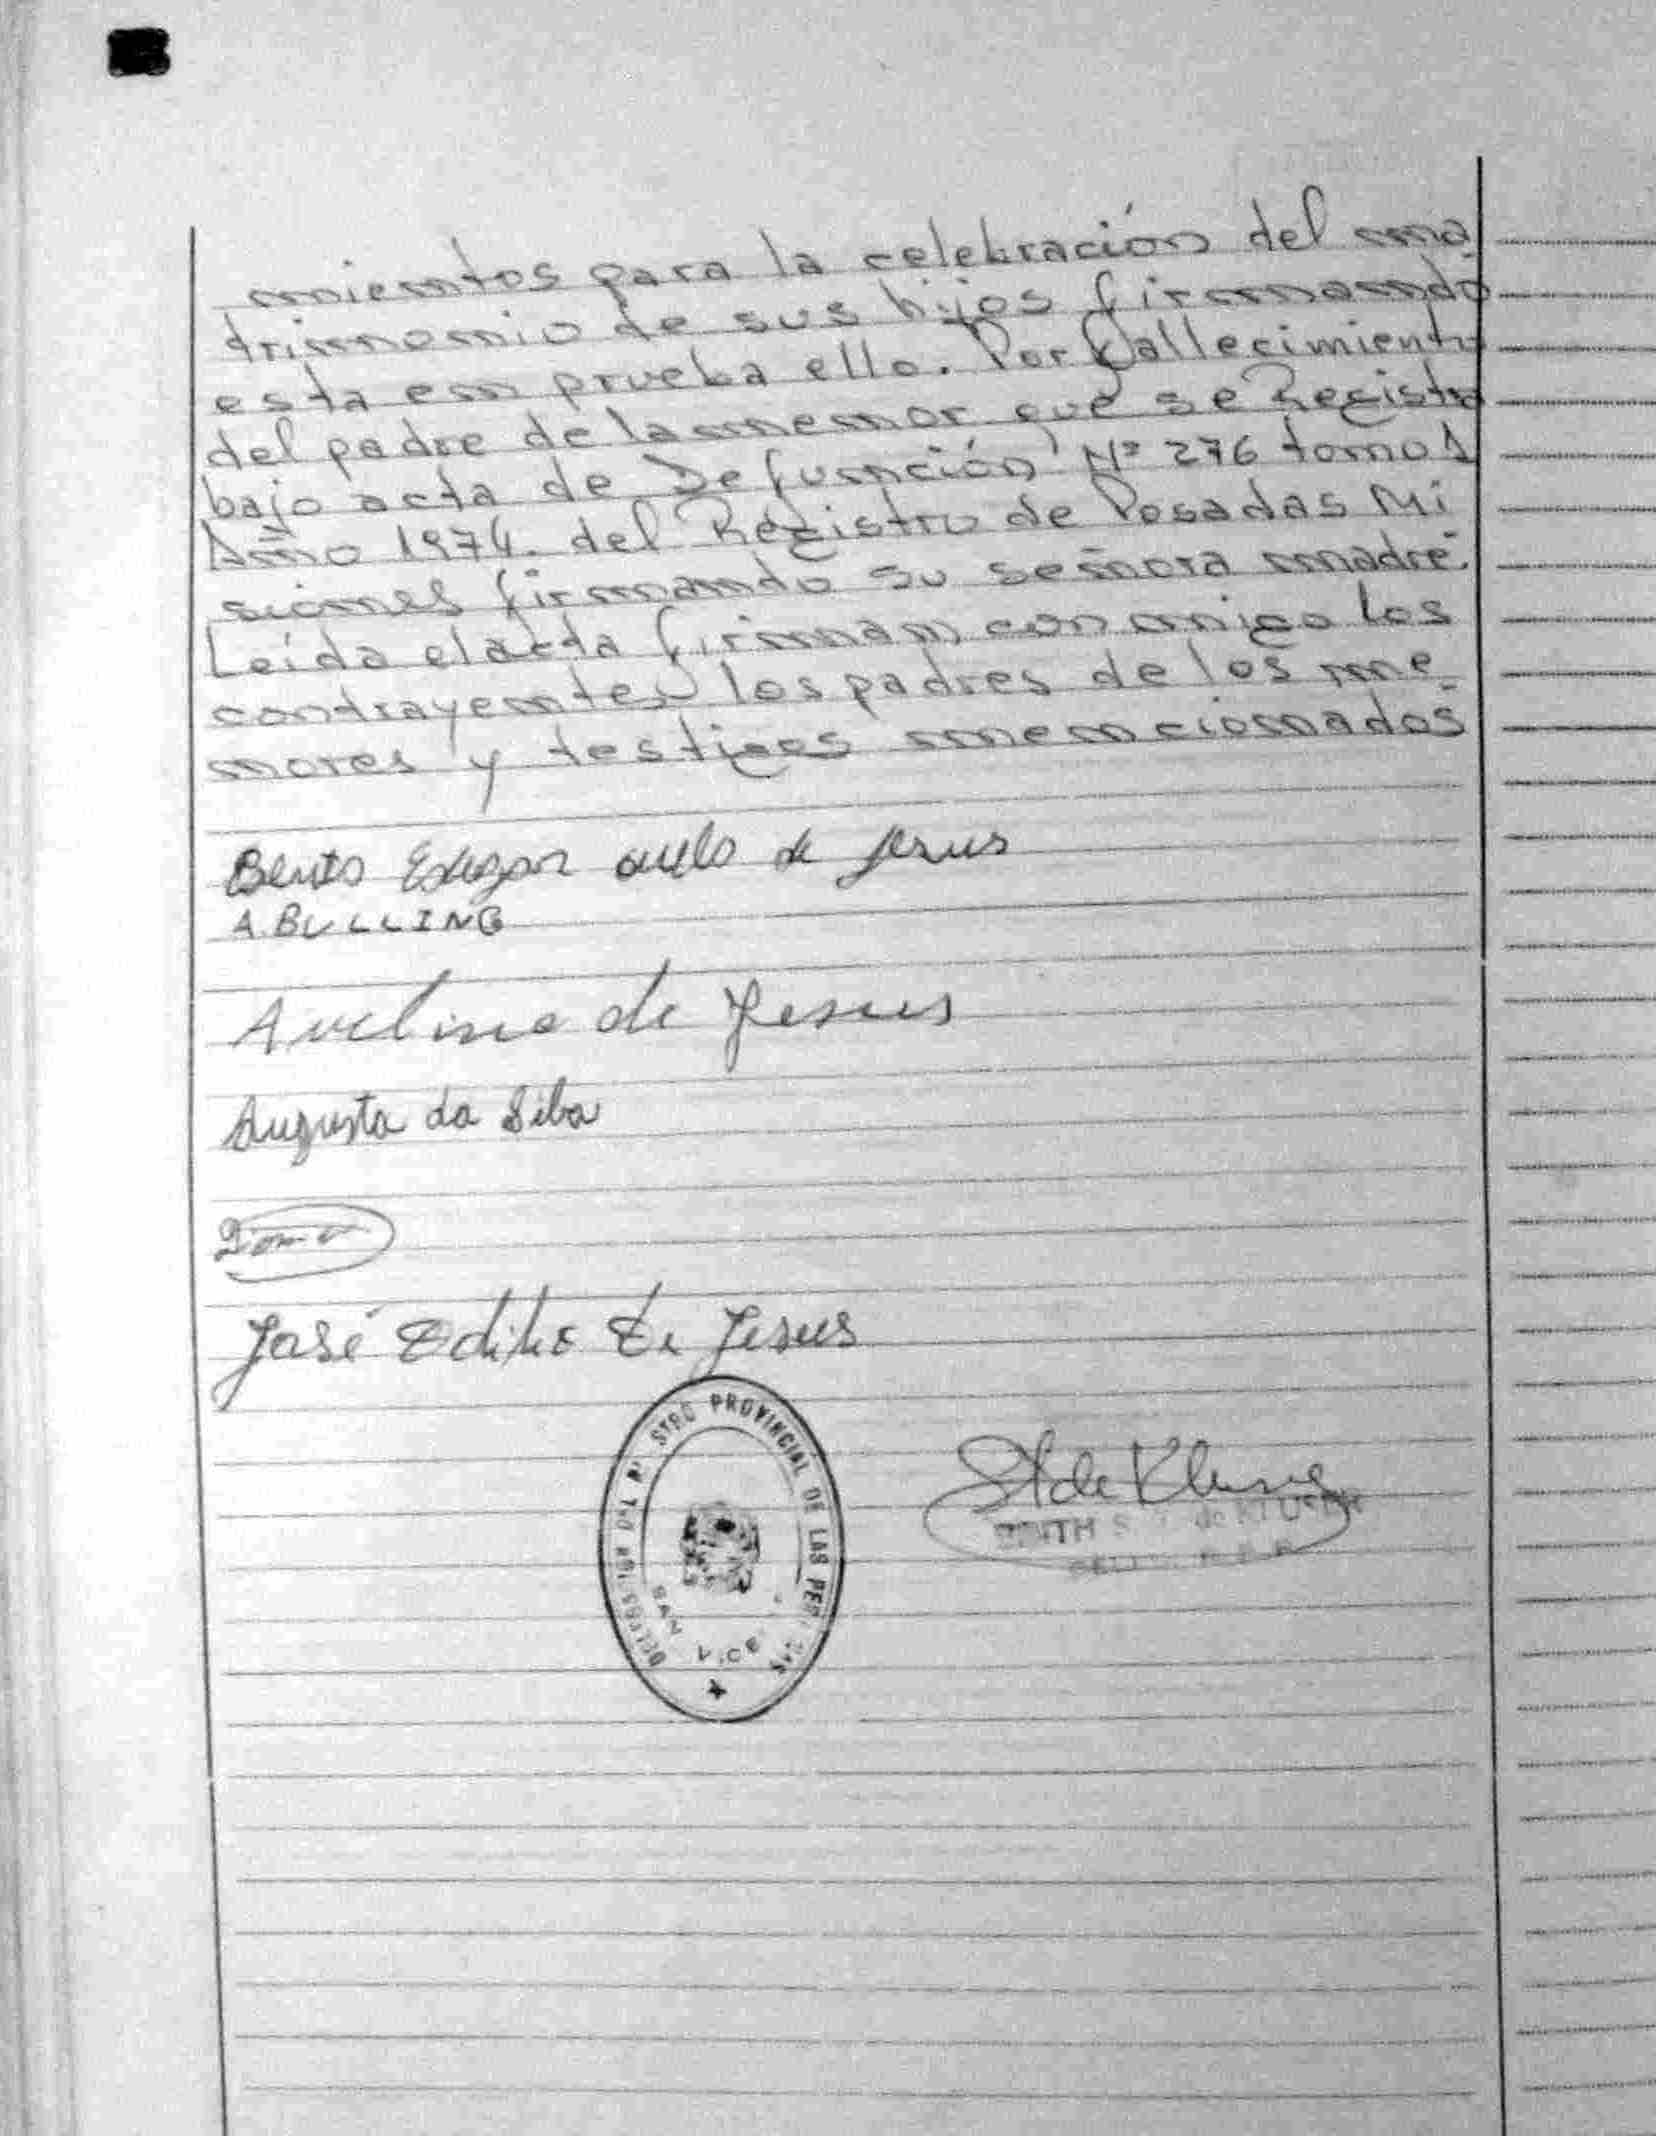 mientos para la celebración del ma
trimonio de sus hijos firmando
esta en prueba ello. Por fallecimiento
del padre de la menor que se Registro
bajo acta de Defunción Nº 276 tomo 1
Año 1974. del Registro de Posadas Mi
siones firmando su señora madre.
Leída el acta firman con migo los
contrayentes los padres de los me
nores y testigos mencionados
Bento de Jesus
A. BULLING
Avelino de Jesus
Augusta da Silva
José de Jesus
PROVINCIAL DE LAS
SAN